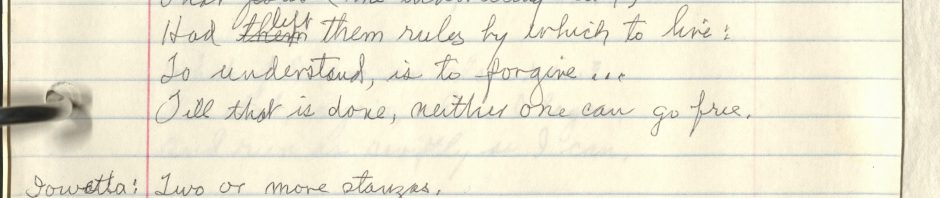 Had left them rules by which to live:
To understand, is to forgive...
Till that is done, neither one can go free.
Iowetta: Two or more stanzas.